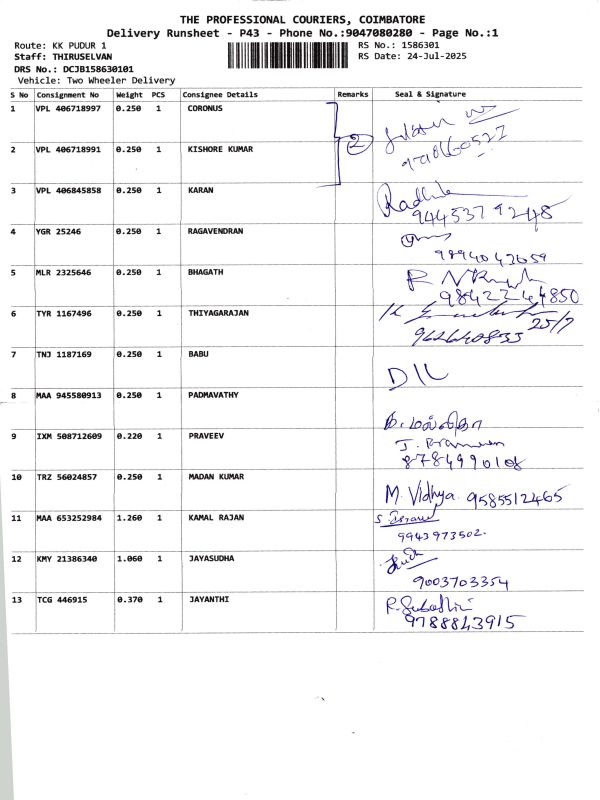 THE PROFESSIONAL COURIERS, COIMBATORE
Delivery Runsheet - P43 - Phone No.:9047080280 - Page No.:1
Route: KK PUDUR 1
RS No.: 1586301
Staff: THIRUSELVAN
RS Date: 24-Jul-2025
DRS No.: DCJB158630101
Vehicle: Two Wheeler Delivery
S No Consignment No Weight PCS Consignee Details Remarks Seal & Signature
1 VPL 406718997 0.250 1 CORONUS
2
2 VPL 406718991 0.250 1 KISHORE KUMAR
3 VPL 406845858 0.250 1 KARAN
9445379248
4 YGR 25246 0.250 1 RAGAVENDRAN
9894043659
5 MLR 2325646 0.250 1 BHAGATH
9842244850
6 TYR 1167496 0.250 1 THIYAGARAJAN
25/7
7 TNJ 1187169 0.250 1 BABU
D/L
8 MAA 945580913 0.250 1 PADMAVATHY
9 IXM 508712609 0.220 1 PRAVEEV
8784990108
10 TRZ 56024857 0.250 1 MADAN KUMAR
M. Vidhya 9585512465
11 MAA 653252984 1.260 1 KAMAL RAJAN
9943973502.
12 KMY 21386340 1.060 1 JAYASUDHA
9003703354
13 TCG 446915 0.370 1 JAYANTHI
R. Subashini
9788843915